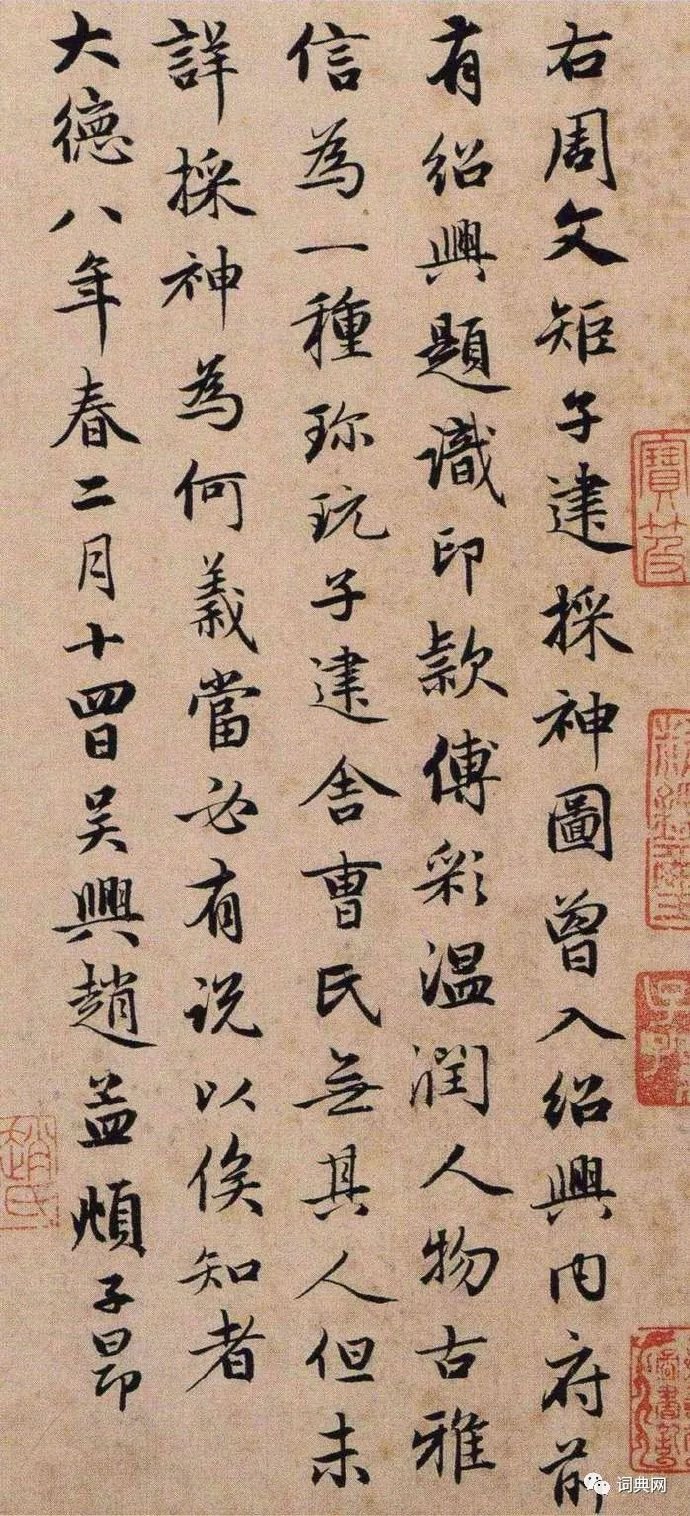 右周文矩子建採神圖曾入紹興内府前
有紹興題識印款傅彩温潤人物古雅
信為一種珎玩子建舎曹氏無其人但未
詳採神為何義當必有説以俟知者
大德八年春二月十四日吴興趙孟頫子昂
趙氏
词典网